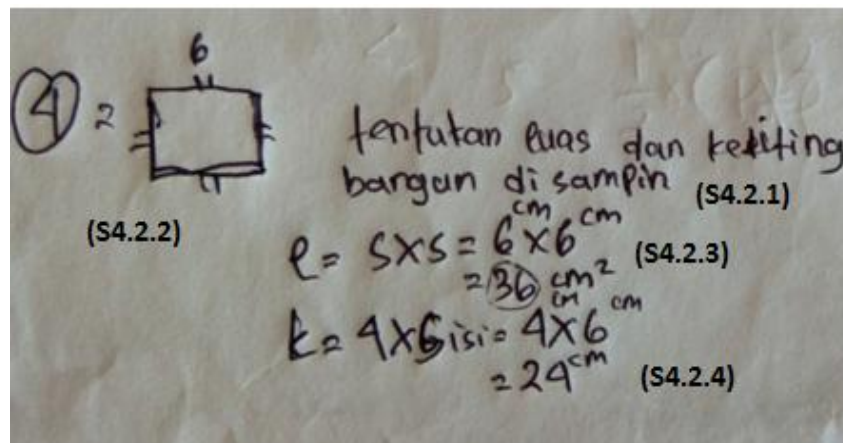 6
4 =
tentukan luas dan keliling
bangun di sampin (S4.2.1)
(S4.2.2)
l = s x s = 6 cm x 6 cm (S4.2.3)
= 36 cm²
k = 4 x sisi = 4 x 6 cm
= 24 cm (S4.2.4)